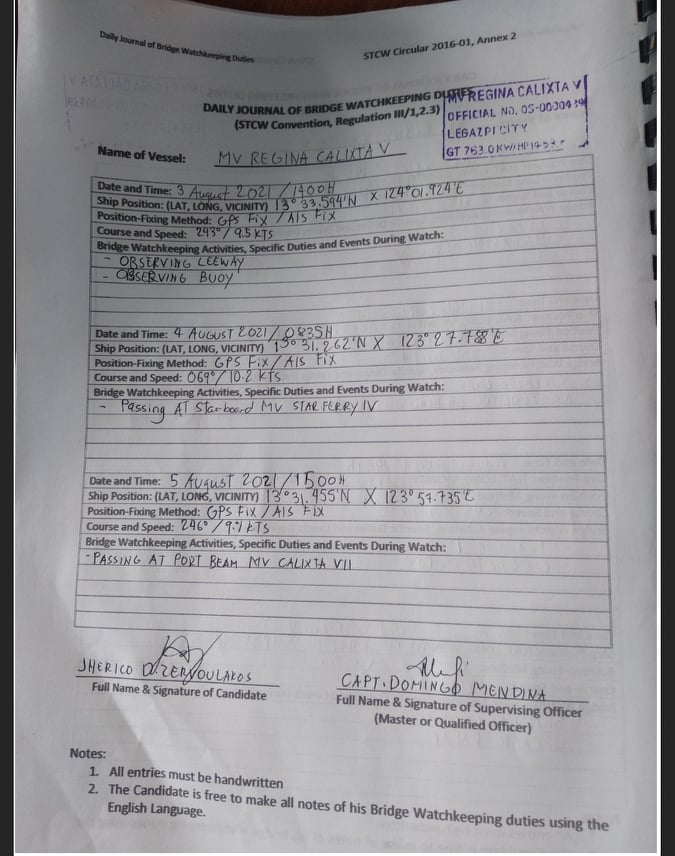 Daily Journal of Bridge Watchkeeping Duties
STCW Circular 2016-01, Annex 2
DAILY JOURNAL OF BRIDGE WATCHKEEPING DUTIES
(STCW Convention, Regulation III/1,2.3)
MV REGINA CALIXTA V
OFFICIAL NO. 05-0000439
LEGAZPI CITY
GT 763.0 KW/HP
Name of Vessel: MV REGINA CALIXTA V
Date and Time: 3 August 2021 / 1400H
Ship Position: (LAT, LONG, VICINITY) 13° 33.594'N X 124° 01.924'E
Position-Fixing Method: GPS Fix / AIS Fix
Course and Speed: 243° / 9.5 KTS
Bridge Watchkeeping Activities, Specific Duties and Events During Watch:
- OBSERVING LEEWAY
- OBSERVING BUOY
Date and Time: 4 AUGUST 2021 / 0835H
Ship Position: (LAT, LONG, VICINITY) 13° 31.262'N X 123° 27.758'E
Position-Fixing Method: GPS Fix / AIS Fix
Course and Speed: 069° / 10.2 KTS
Bridge Watchkeeping Activities, Specific Duties and Events During Watch:
- Passing AT Starboard MV STAR FERRY IV
Date and Time: 5 August 2021 / 1500H
Ship Position: (LAT, LONG, VICINITY) 13° 31.455'N X 123° 57.735'E
Position-Fixing Method: GPS Fix / AIS Fix
Course and Speed: 246° / 9.7 KTS
Bridge Watchkeeping Activities, Specific Duties and Events During Watch:
- PASSING AT PORT BEAM MV CALIXTA VII
JHERICO D. ZERVOULAKOS
Full Name & Signature of Candidate
CAPT. DOMINGO MENDINA
Full Name & Signature of Supervising Officer
(Master or Qualified Officer)
Notes:
1. All entries must be handwritten
2. The Candidate is free to make all notes of his Bridge Watchkeeping duties using the
English Language.